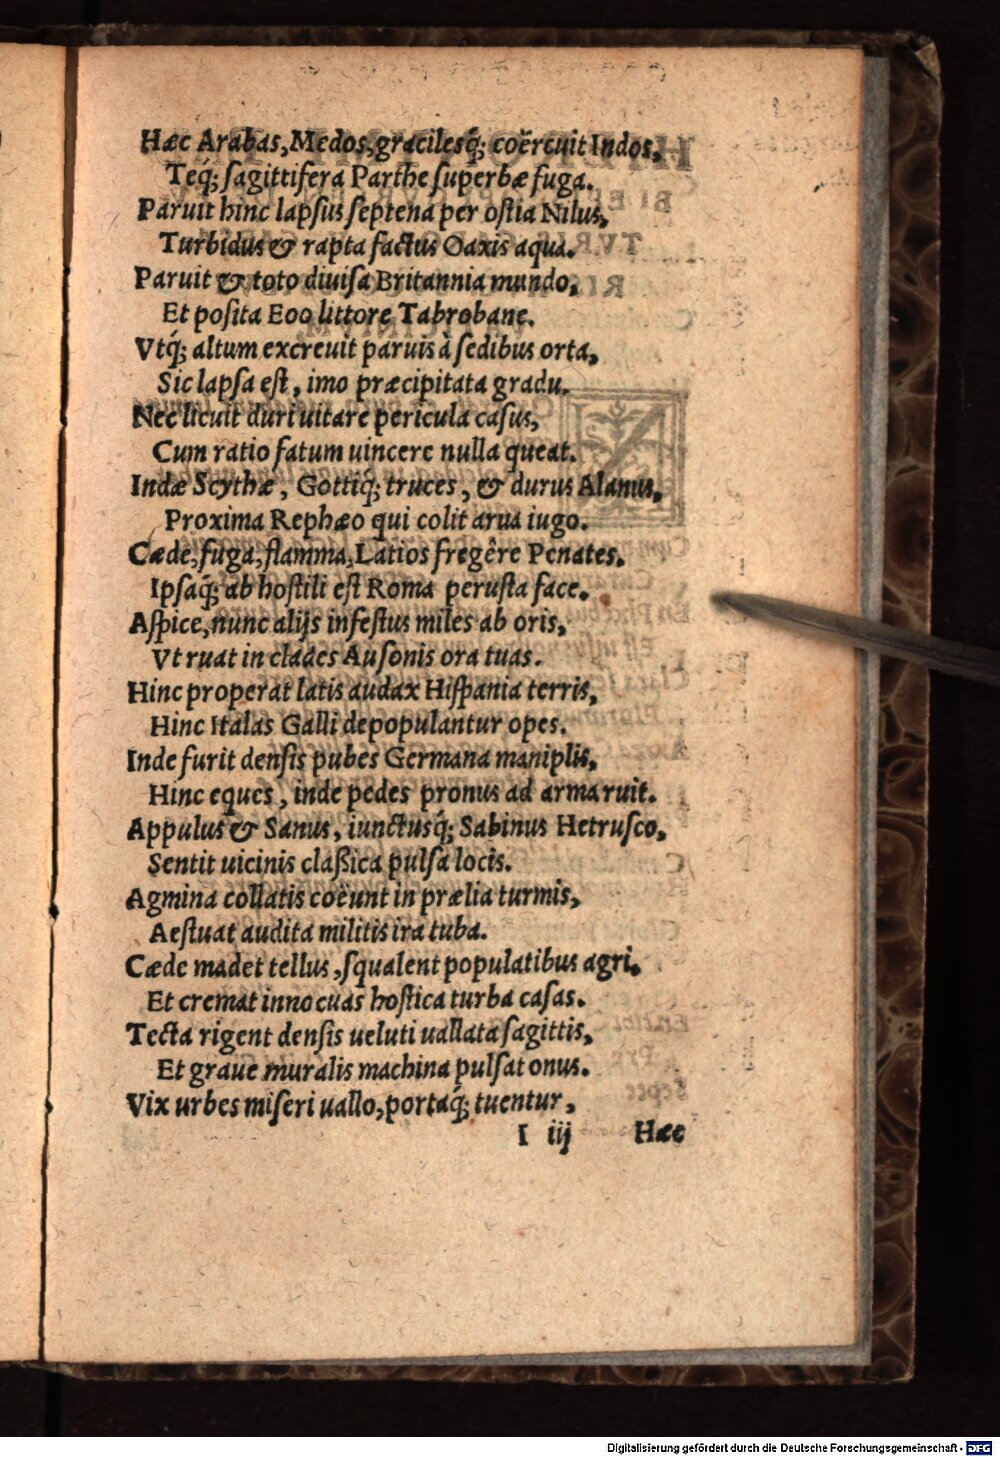 Hæc Arabas, Medos, gracilesq́; coërcuit Indos,
Teq́; sagittifera Parthe superbæ fuga.
Paruit hinc lapsus septena per ostia Nilus,
Turbidus & rapta factus Oaxis aqua.
Paruit & toto diuisa Britannia mundo,
Et posita Eoo littore Tabrobane.
Vtq́; altum excreuit paruis à sedibus orta,
Sic lapsa est, imo præcipitata gradu.
Nec licuit duri uitare pericula casus,
Cum ratio fatum uincere nulla queat.
Indæ Scythæ, Gottiq́; truces, & durus Alanus,
Proxima Rephæo qui colit arua iugo.
Cæde, fuga, flamma, Latios fregêre Penates.
Ipsaq́; ab hostili est Roma perusta face.
Aspice, nunc alijs infestus miles ab oris,
Vt ruat in clades Ausonis ora tuas.
Hinc properat latis audax Hispania terris,
Hinc Italas Galli depopulantur opes.
Inde furit densis pubes Germana maniplis,
Hinc eques, inde pedes pronus ad arma ruit.
Appulus & Sanus, iunctusq́; Sabinus Hetrusco,
Sentit uicinis classica pulsa locis.
Agmina collatis coëunt in prælia turmis,
Aestuat audita militis ira tuba.
Cæde madet tellus, squalent populatibus agri.
Et cremat innocuas hostica turba casas.
Tecta rigent densis ueluti uallata sagittis,
Et graue muralis machina pulsat onus.
Vix urbes miseri uallo, portaq́; tuentur,
I iij Hæc
Digitalisierung gefördert durch die Deutsche Forschungsgemeinschaft - DFG